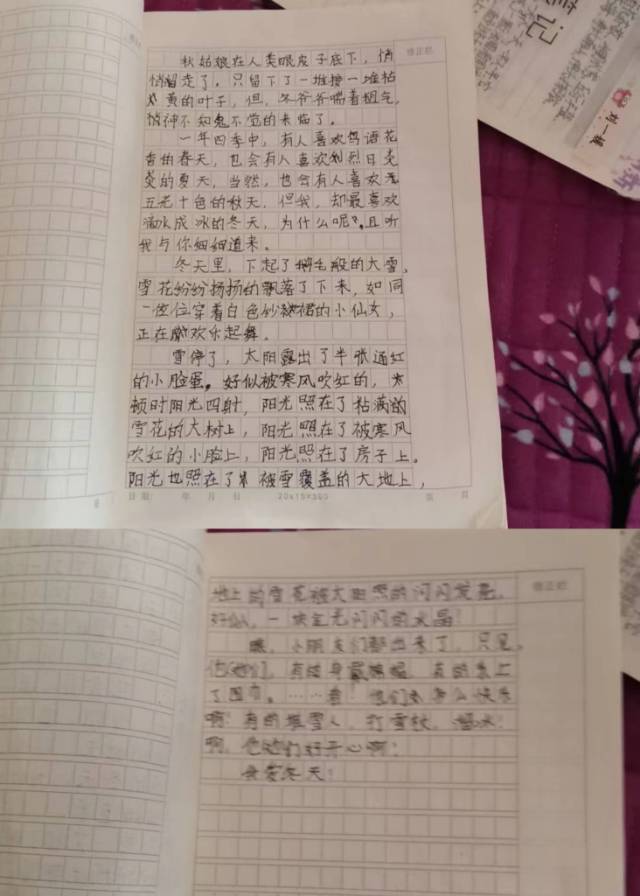 秋姑娘在人类眼皮子底下，悄
悄溜走了，只留下了一堆接一堆枯
黄的叶子，但，冬爷爷喘着粗气，
神不知鬼不觉的来临了。
一年四季中，有人喜欢鸟语花
香的春天，也会有人喜欢烈日炎
炎的夏天，当然，也会有人喜欢
五光十色的秋天，但我，却最喜欢
滴水成冰的冬天，为什么呢？且听
我与你细细道来。
冬天里，下起了鹅毛般的大雪，
雪花纷纷扬扬的飘落了下来，如同
一位位穿着白色纱裙的小仙女，
正在欢乐起舞。
雪停了，太阳露出了半张通红
的小脸蛋，好似被寒风吹红的，
顿时阳光四射，阳光照在了粘满
雪花的大树上，阳光照在了被寒风
吹红的小脸上，阳光照在了房子上。
阳光也照在了被雪覆盖的大地上，
地上的雪花被大阳照的闪闪发亮，
好似，一块金光闪闪的水晶！
小朋友们都出来了，只见，
他们，有的身戴，有的系上
了围巾。……看！他们多么快乐
啊！有的堆雪人，打雪仗，溜冰！
啊，他们好开心啊！
我爱冬天！
修正栏
日期 年 月 日
20x15=300
第 页
修正栏
笔记